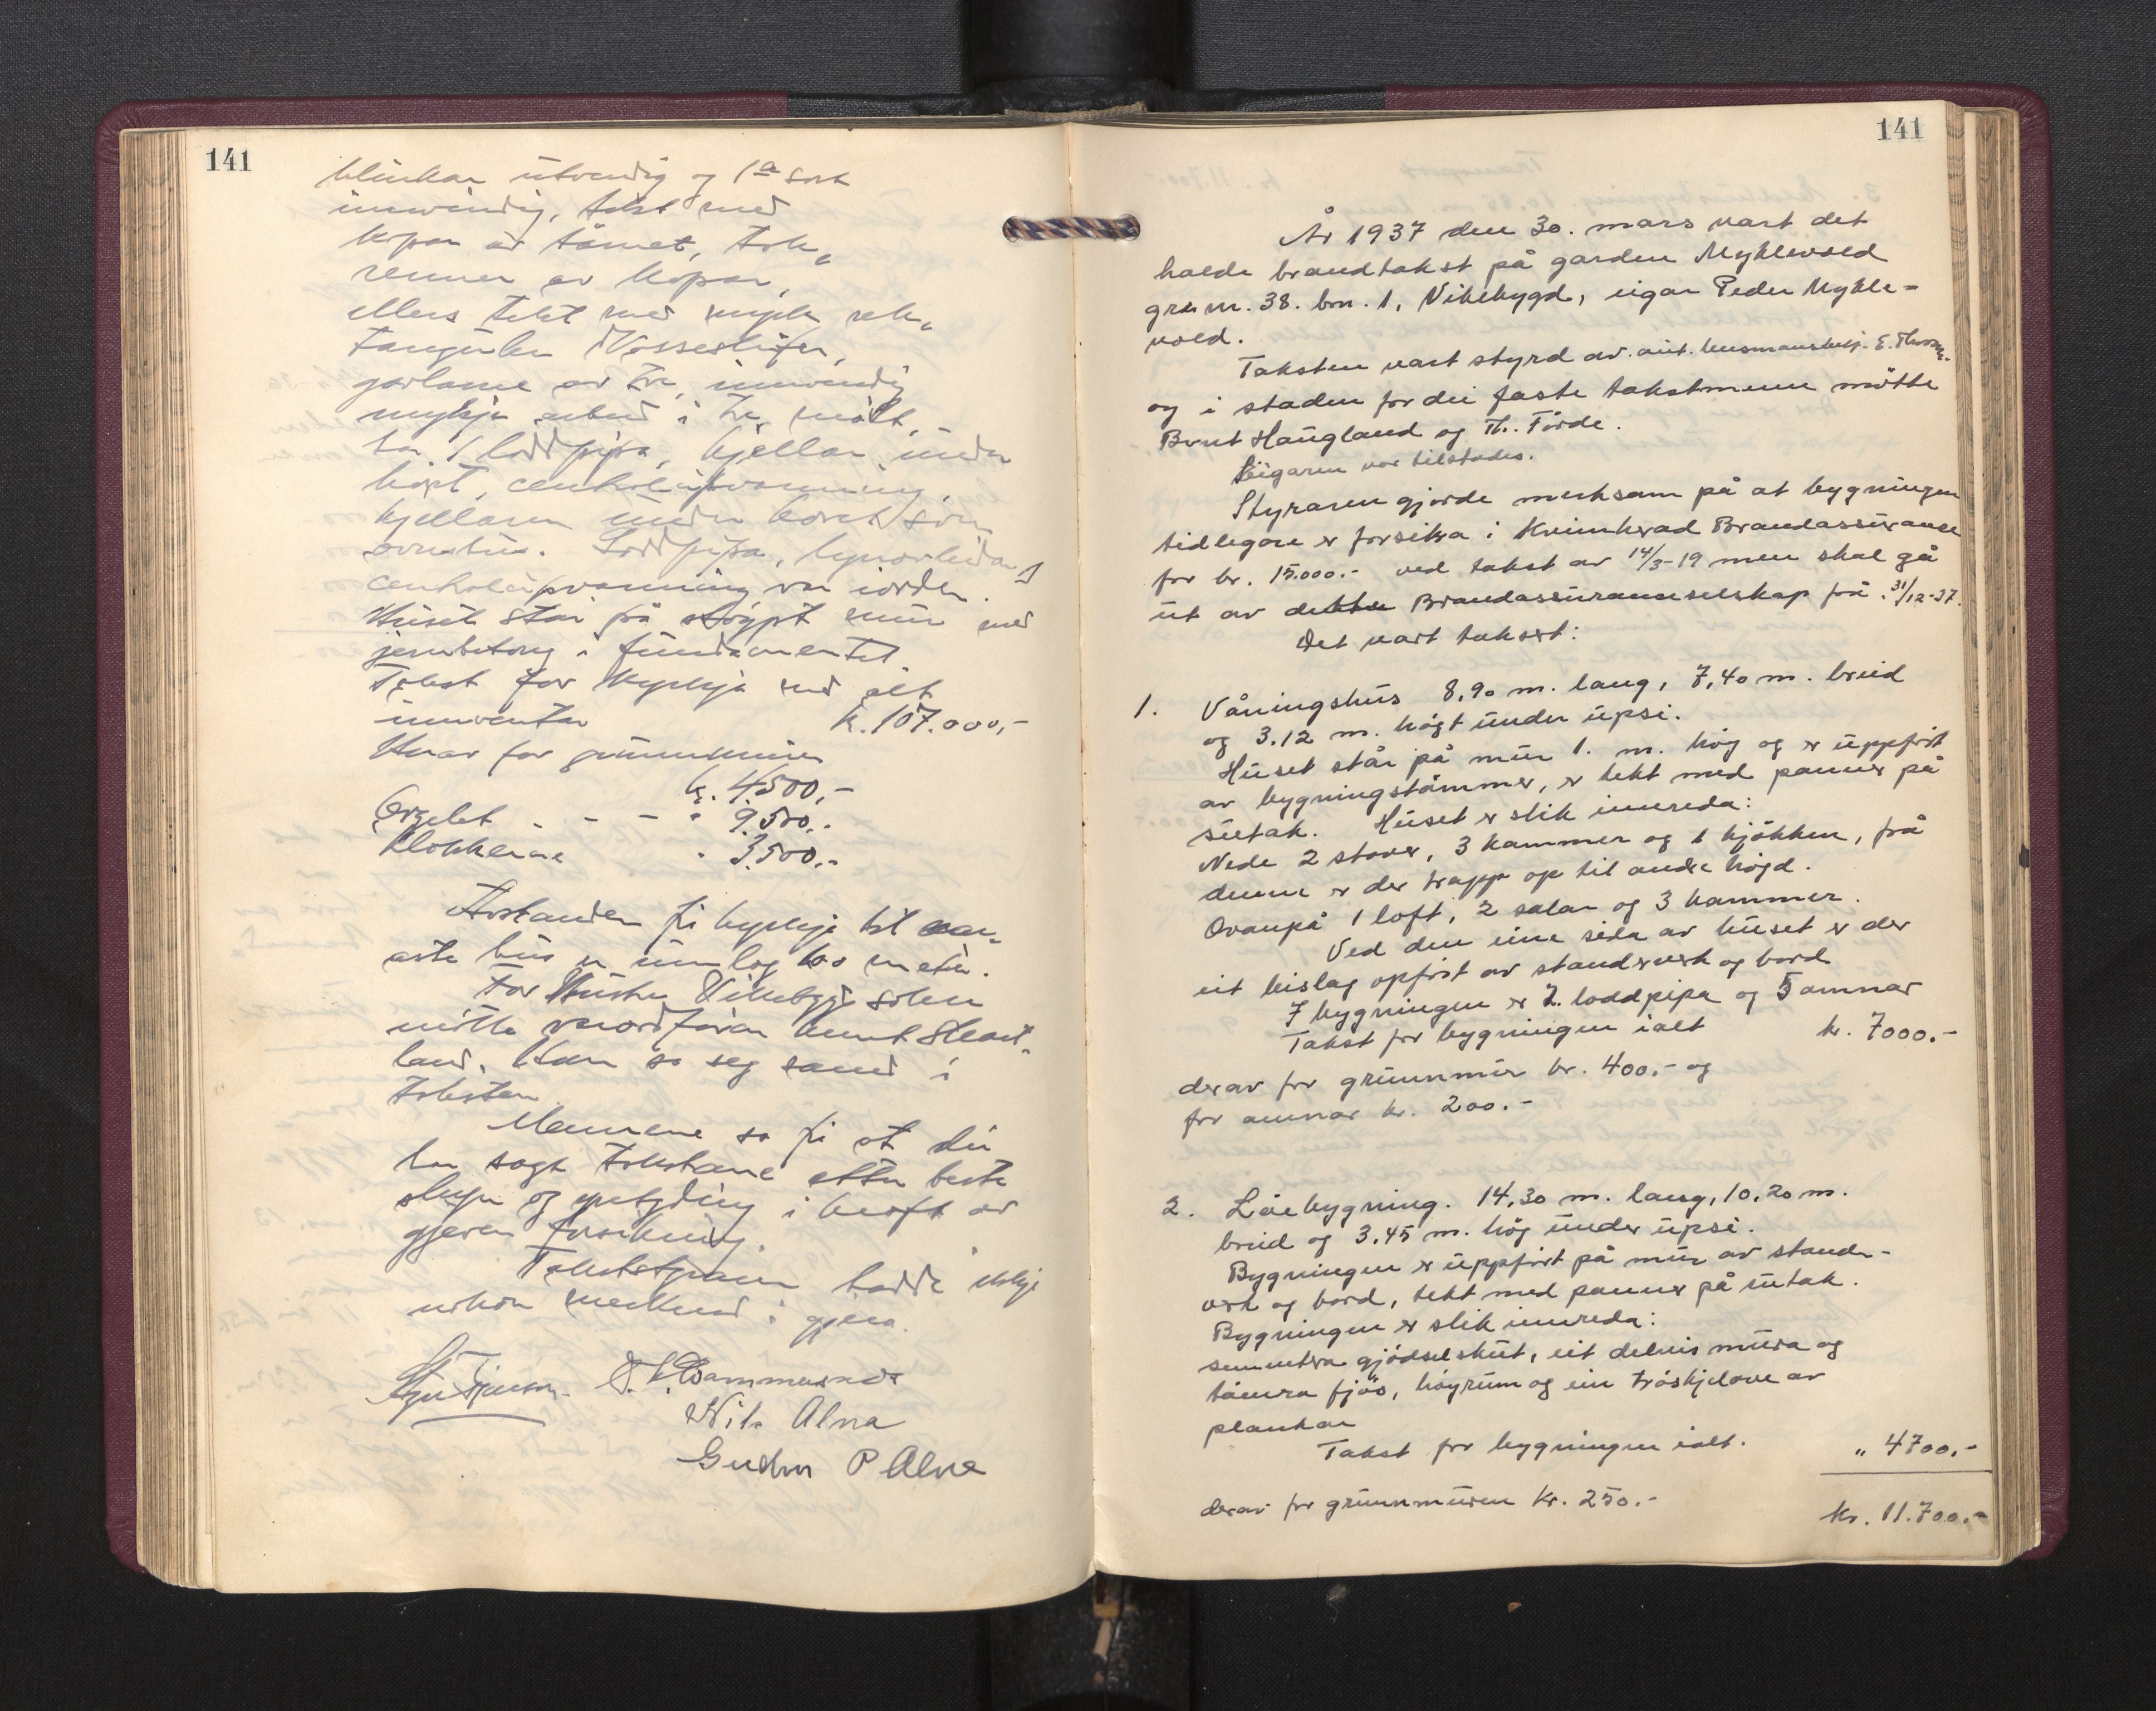 141
utvendig og 1a sort
innvendig, tekt med
kopar av tårnet, tak-
renner av kopar,
ellers tekt med
tangulær Vosseskifer,
av tre, innvendig
mykje arbeid i tre, målt,
har 1 loddpipa, kjellar under
kjellaren under koret som
ovnshus. Loddpipa,
centralupvarming var iorden.
Huset står på støypt mur med
jernbetong i fundamentet.
Takst for kyrkja med alt
inventar k. 107.000,-
Herav for grunnmuren
k. 4500,-
Orgelet - - - " 9500,-
Klokkerne " 3.500,-
Avstanden frå kyrkja til nær-
aste hus er um lag 100 meter.
For Vikebygd sokn
møtte
land. Han sa seg samd i
taksten.
Mennene sa frå at dei
har sagt takstane etter beste
skjyn og i kraft av
gjeven forsikring.
hadde ikkje
nokon merknad å gjera.
Nils Alna
Gudm P Alne
141
År 1937 den 30. mars vart det
halde brandtakst på garden Myklevold
grn. 38. brn. 1, Vikebygd, eigar Peder Mykle-
vold.
Taksten vart styrd av
og i staden for dei faste takstmenn møtte
Bernt Haugland og Th. Förde.
Eigaren var tilstades.
Styraren gjorde merksam på at bygningen
tidlegare er forsikra i Kvinherad Brandassurance
for kr. 15.000.- ved takst av 14/3-19 men skal gå
ut av dette Brandassuranseselskap frå 31/12-37.
Det vart taksert:
1. Våningshus 8,90 m. lang, 7,40 m. breid
og 3.12 m. høgt under upsi.
Huset står på mur 1. m. høg og er uppfört
av bygningstömmer, er tekt med panner på
sutak. Huset er slik innreda:
Nede 2 stover, 3 kammer og 1 kjökken, frå
denne er der trapp op til andre högd.
Ovanpå 1 loft, 2 salar og 3 kammer.
Ved den eine sida av huset er der
eit bislag opfört av standverk og bord
I bygningen er 2. loddpipa og 5 omnar
Takst for bygningen ialt kr. 7000.-
derav for grunnmur kr. 400.- og
for omnar kr. 200.-
2. Löebygning. 14,30 m. lang, 10,20 m.
breid og 3,45 m. høg under upsi.
Bygningen er uppfört på mur av stand-
verk og bord, tekt med panner på sutak.
Bygningen er slik innreda:
sementra gjödselskut, eit delvis mura og
tömra fjös, höyrum og ein tröskjelove av
plankar
Takst for bygningen ialt. " 4700.-
derav for grunnmuren Kr. 250.-
Kr. 11.700.-